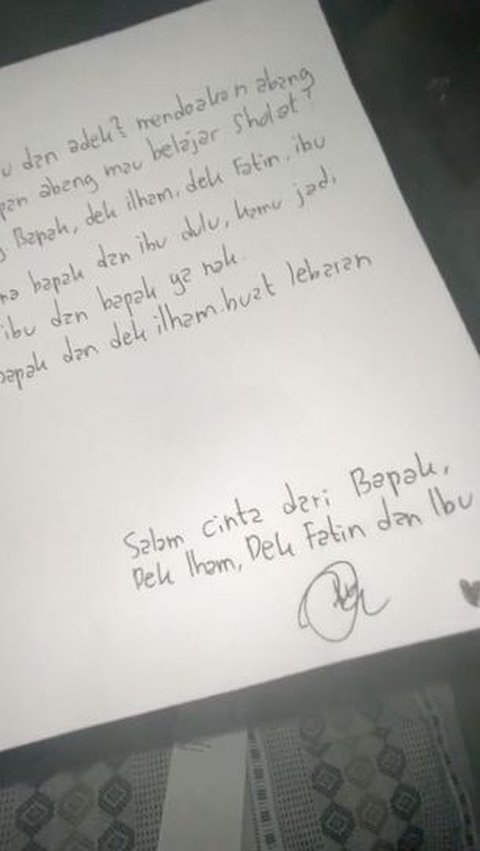 dan adek² mendoakan abang
abang mau belajar Sholat?
Bapak, dek ilham, dek Fatin, ibu
bapak dan ibu dulu, kamu jadi
ibu dan bapak ya nak.
bapak dan dek ilham.buat lebaran
Salam cinta dari Bapak,
Dek Ilham, Dek Fatin dan Ibu